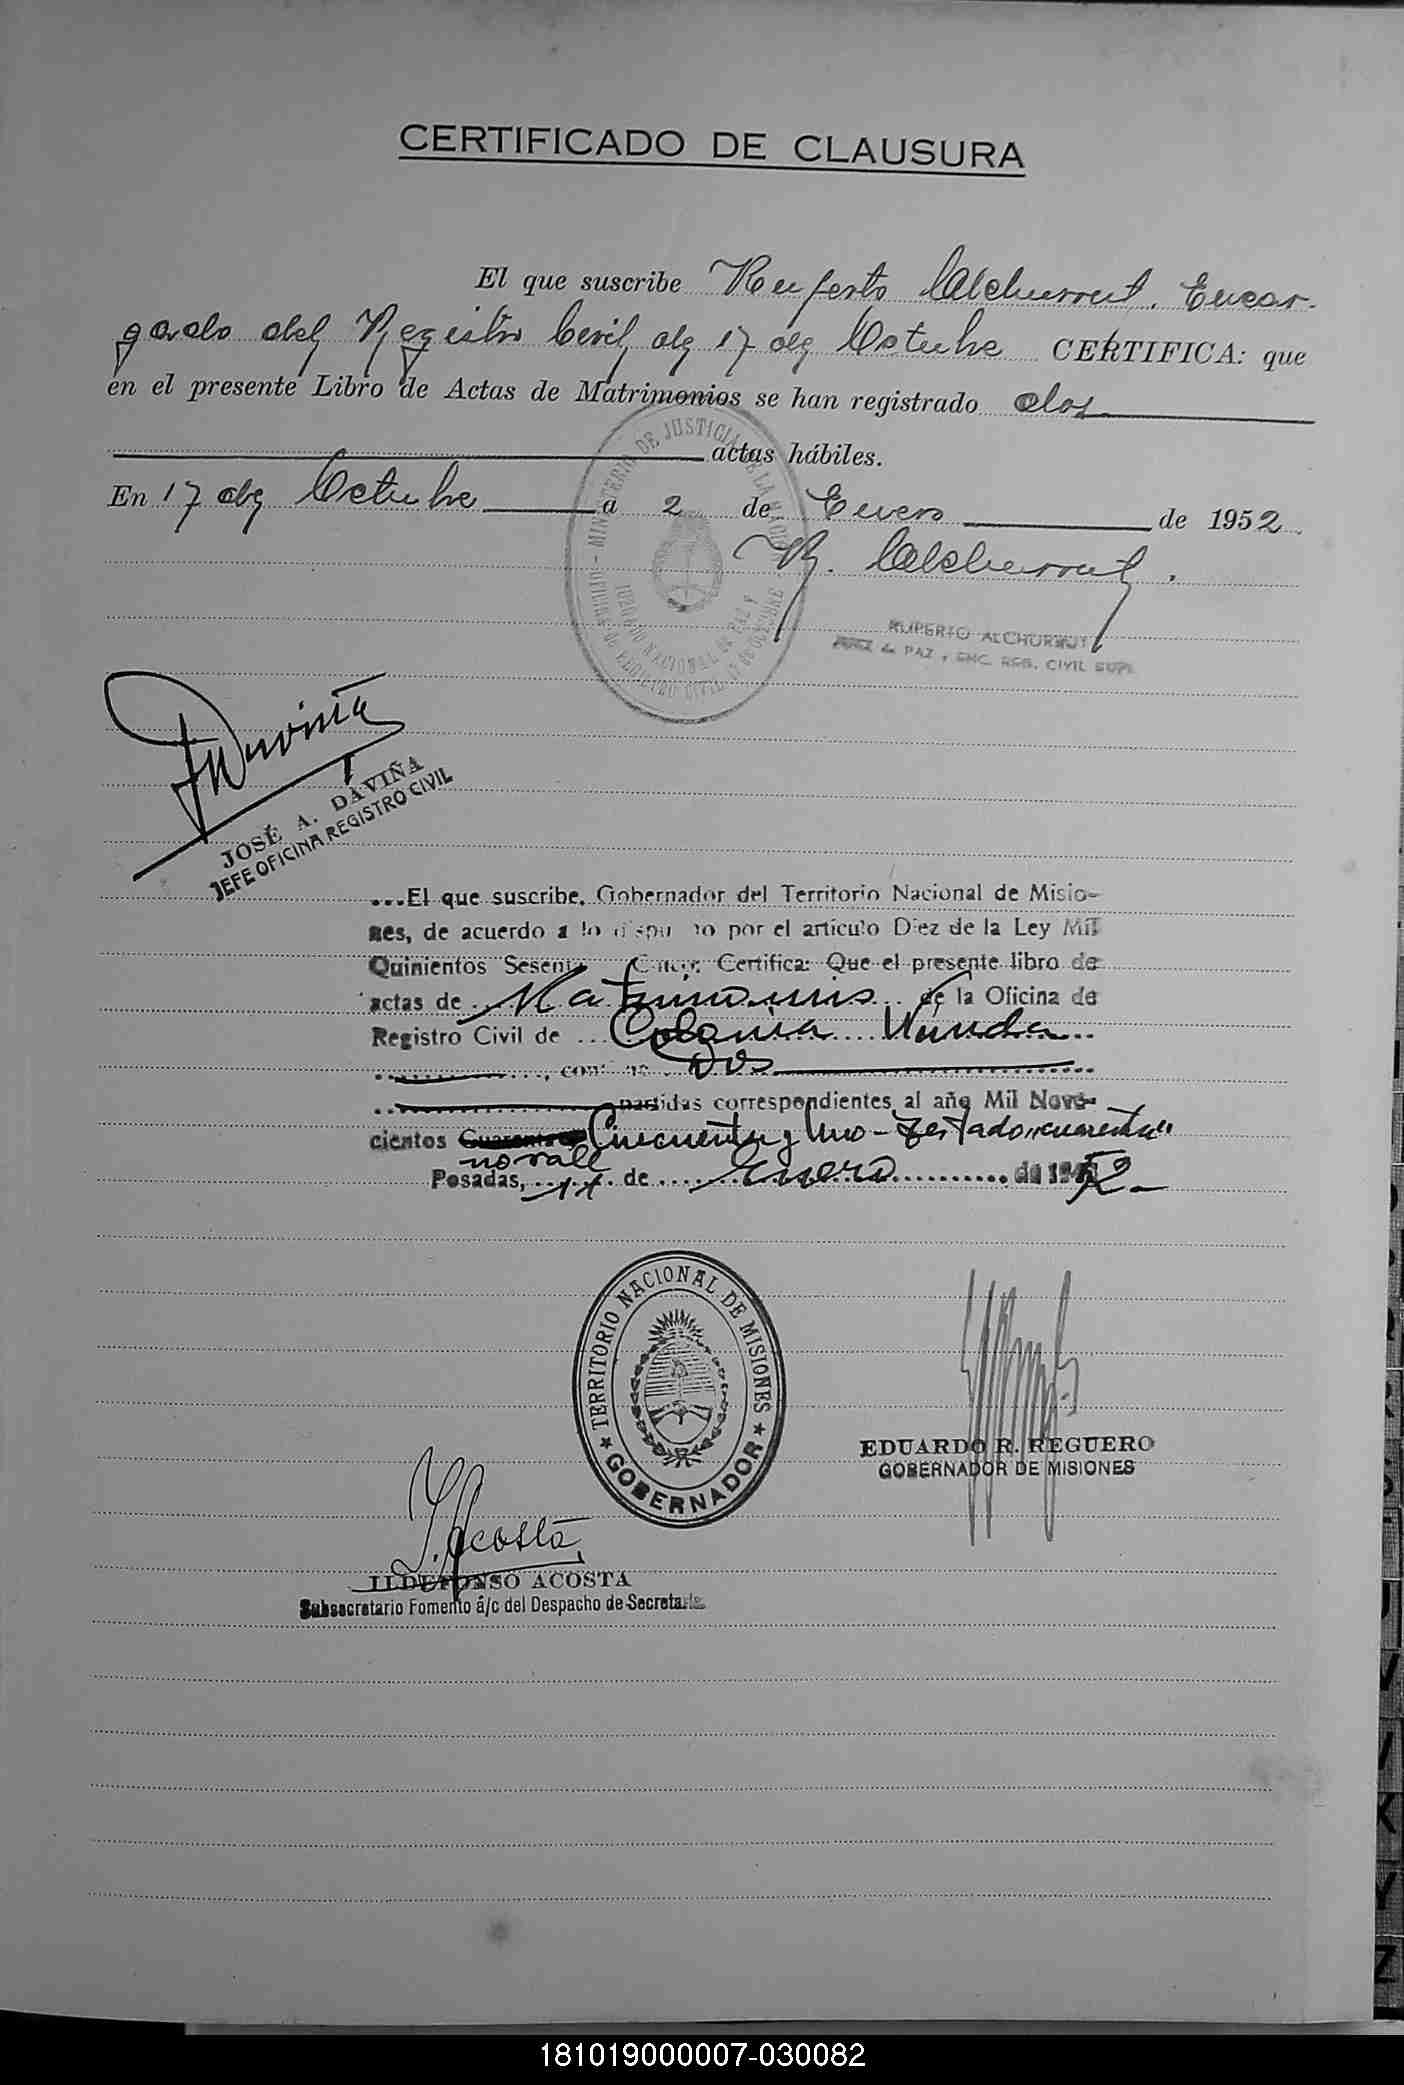 CERTIFICADO DE CLAUSURA
El que suscribe Ruperto Alchurrut, Encar-
gado del Registro Civil de 17 de Octubre CERTIFICA: que
en el presente Libro de Actas de Matrimonios se han registrado dos
actas hábiles.
En 17 de Octubre a 2 de Enero de 1952
R. Alchurrut.
RUPERTO ALCHURRUT
JUEZ de PAZ y ENC. REG. CIVIL SUPL.
MINISTERIO DE JUSTICIA DE LA NACION
JUZGADO NACIONAL DE PAZ Y
OFICINA DE REGISTRO CIVIL 17 DE OCTUBRE
JDaviña
JOSÉ A. DAVIÑA
JEFE OFICINA REGISTRO CIVIL
...El que suscribe, Gobernador del Territorio Nacional de Misio-
nes, de acuerdo a lo dispu to por el artículo Diez de la Ley Mil
Quinientos Sesenta Cinco, Certifica: Que el presente libro de
actas de Matrimonios de la Oficina de
Registro Civil de Colonia
Dos
partidas correspondientes al año Mil Nove-
cientos Cuarenta Cincuenta y Uno - Testado "cuarenta"
no vale
Posadas, 11 de Enero de 1952.-
TERRITORIO NACIONAL DE MISIONES
GOBERNADOR
EDUARDO R. REGUERO
GOBERNADOR DE MISIONES
I. Acosta
ILDEFONSO ACOSTA
Subsecretario Fomento á/c del Despacho de Secretaría
181019000007-030082